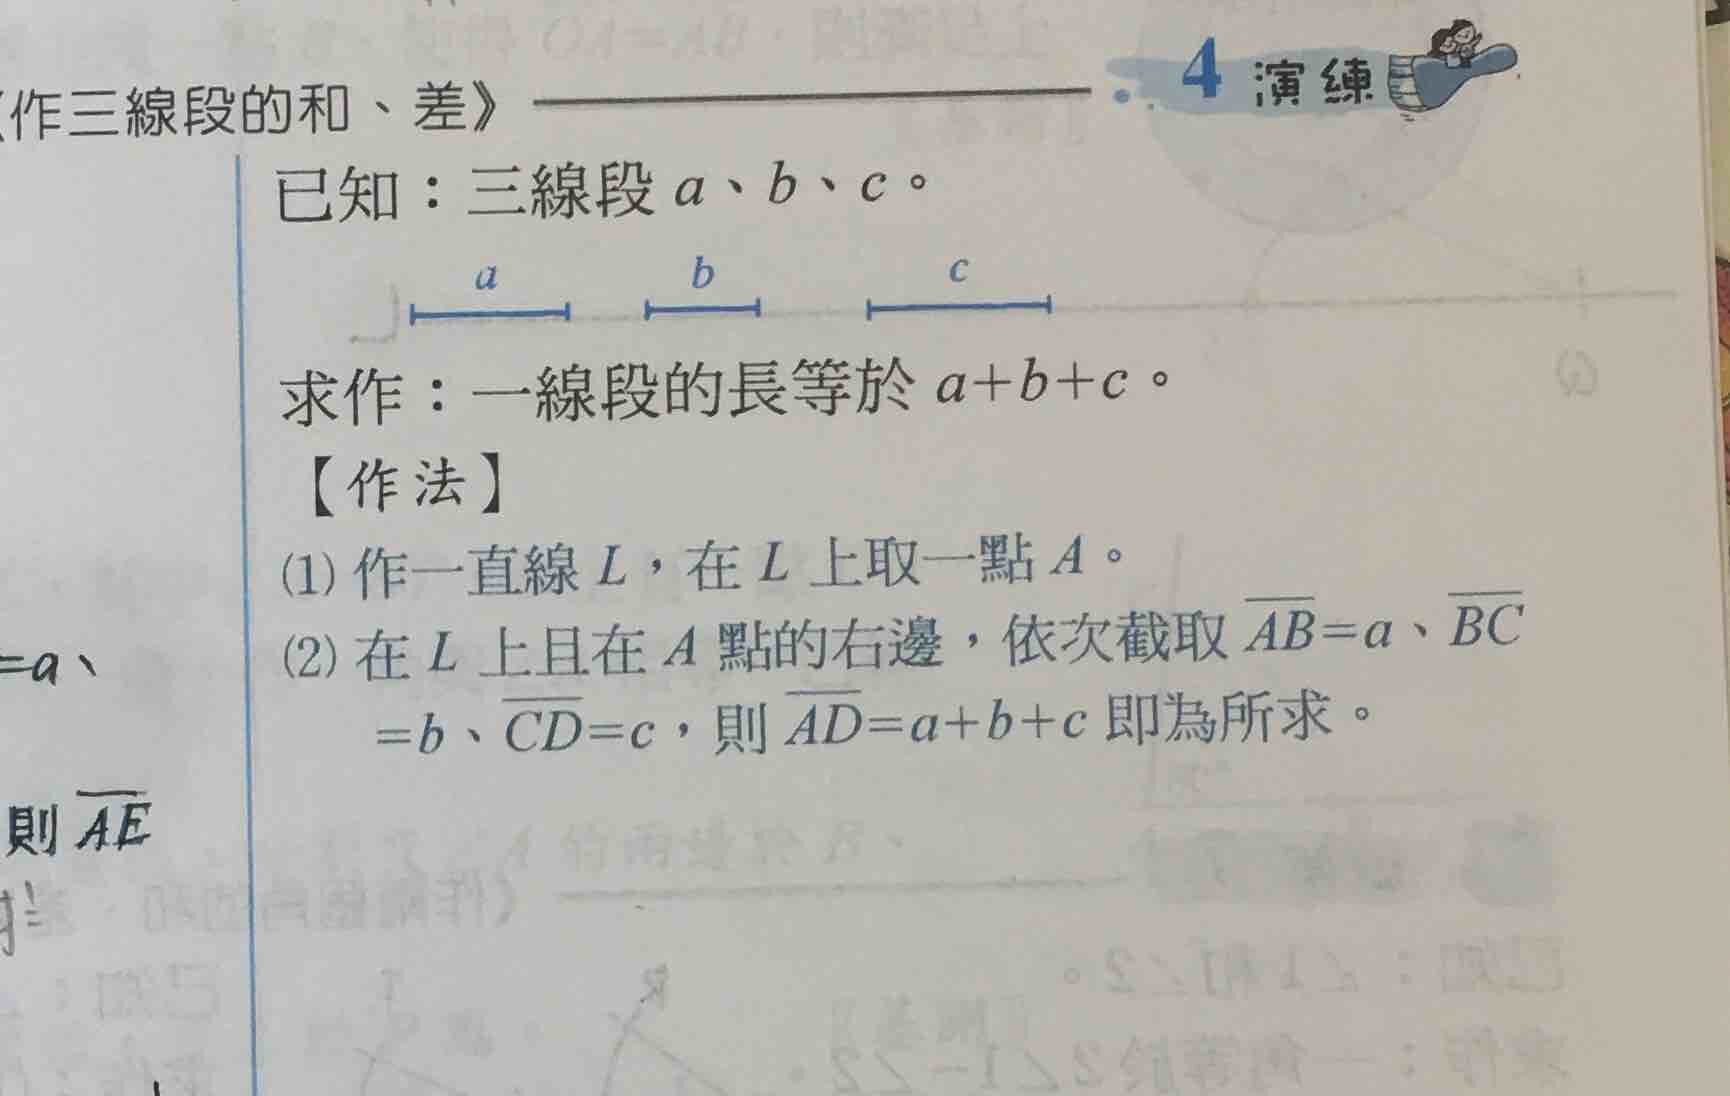 《作三線段的和、差》 4 演練
已知：三線段 a、b、c。
a b c
求作：一線段的長等於 a+b+c。
【作法】
(1) 作一直線 L，在 L 上取一點 A。
(2) 在 L 上且在 A 點的右邊，依次截取 \overline{AB}=a、\overline{BC}
=a、
=b、\overline{CD}=c，則 \overline{AD}=a+b+c 即為所求。
則 \overline{AE}